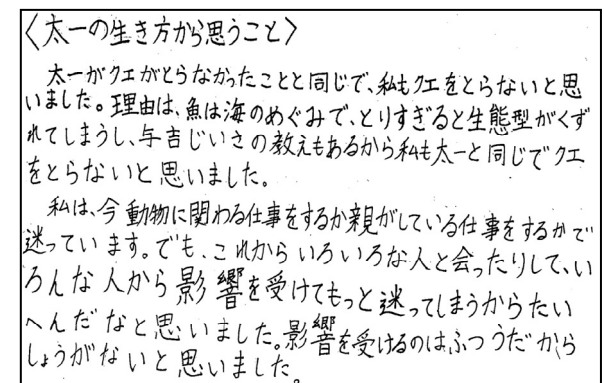 〈太一の生き方から思うこと〉
太一がクエがとらなかったことと同じで、私もクエをとらないと思
いました。理由は、魚は海のめぐみで、とりすぎると生態型がくず
れてしまうし、与吉じいさの教えもあるから私も太一と同じでクエ
をとらないと思いました。
私は、今動物に関わる仕事をするか親がしている仕事をするかで
迷っています。でも、これからいろいろな人と会ったりして、い
ろんな人から影響を受けてもっと迷ってしまうからたい
へんだなと思いました。影響を受けるのは、ふつうだから
しょうがないと思いました。